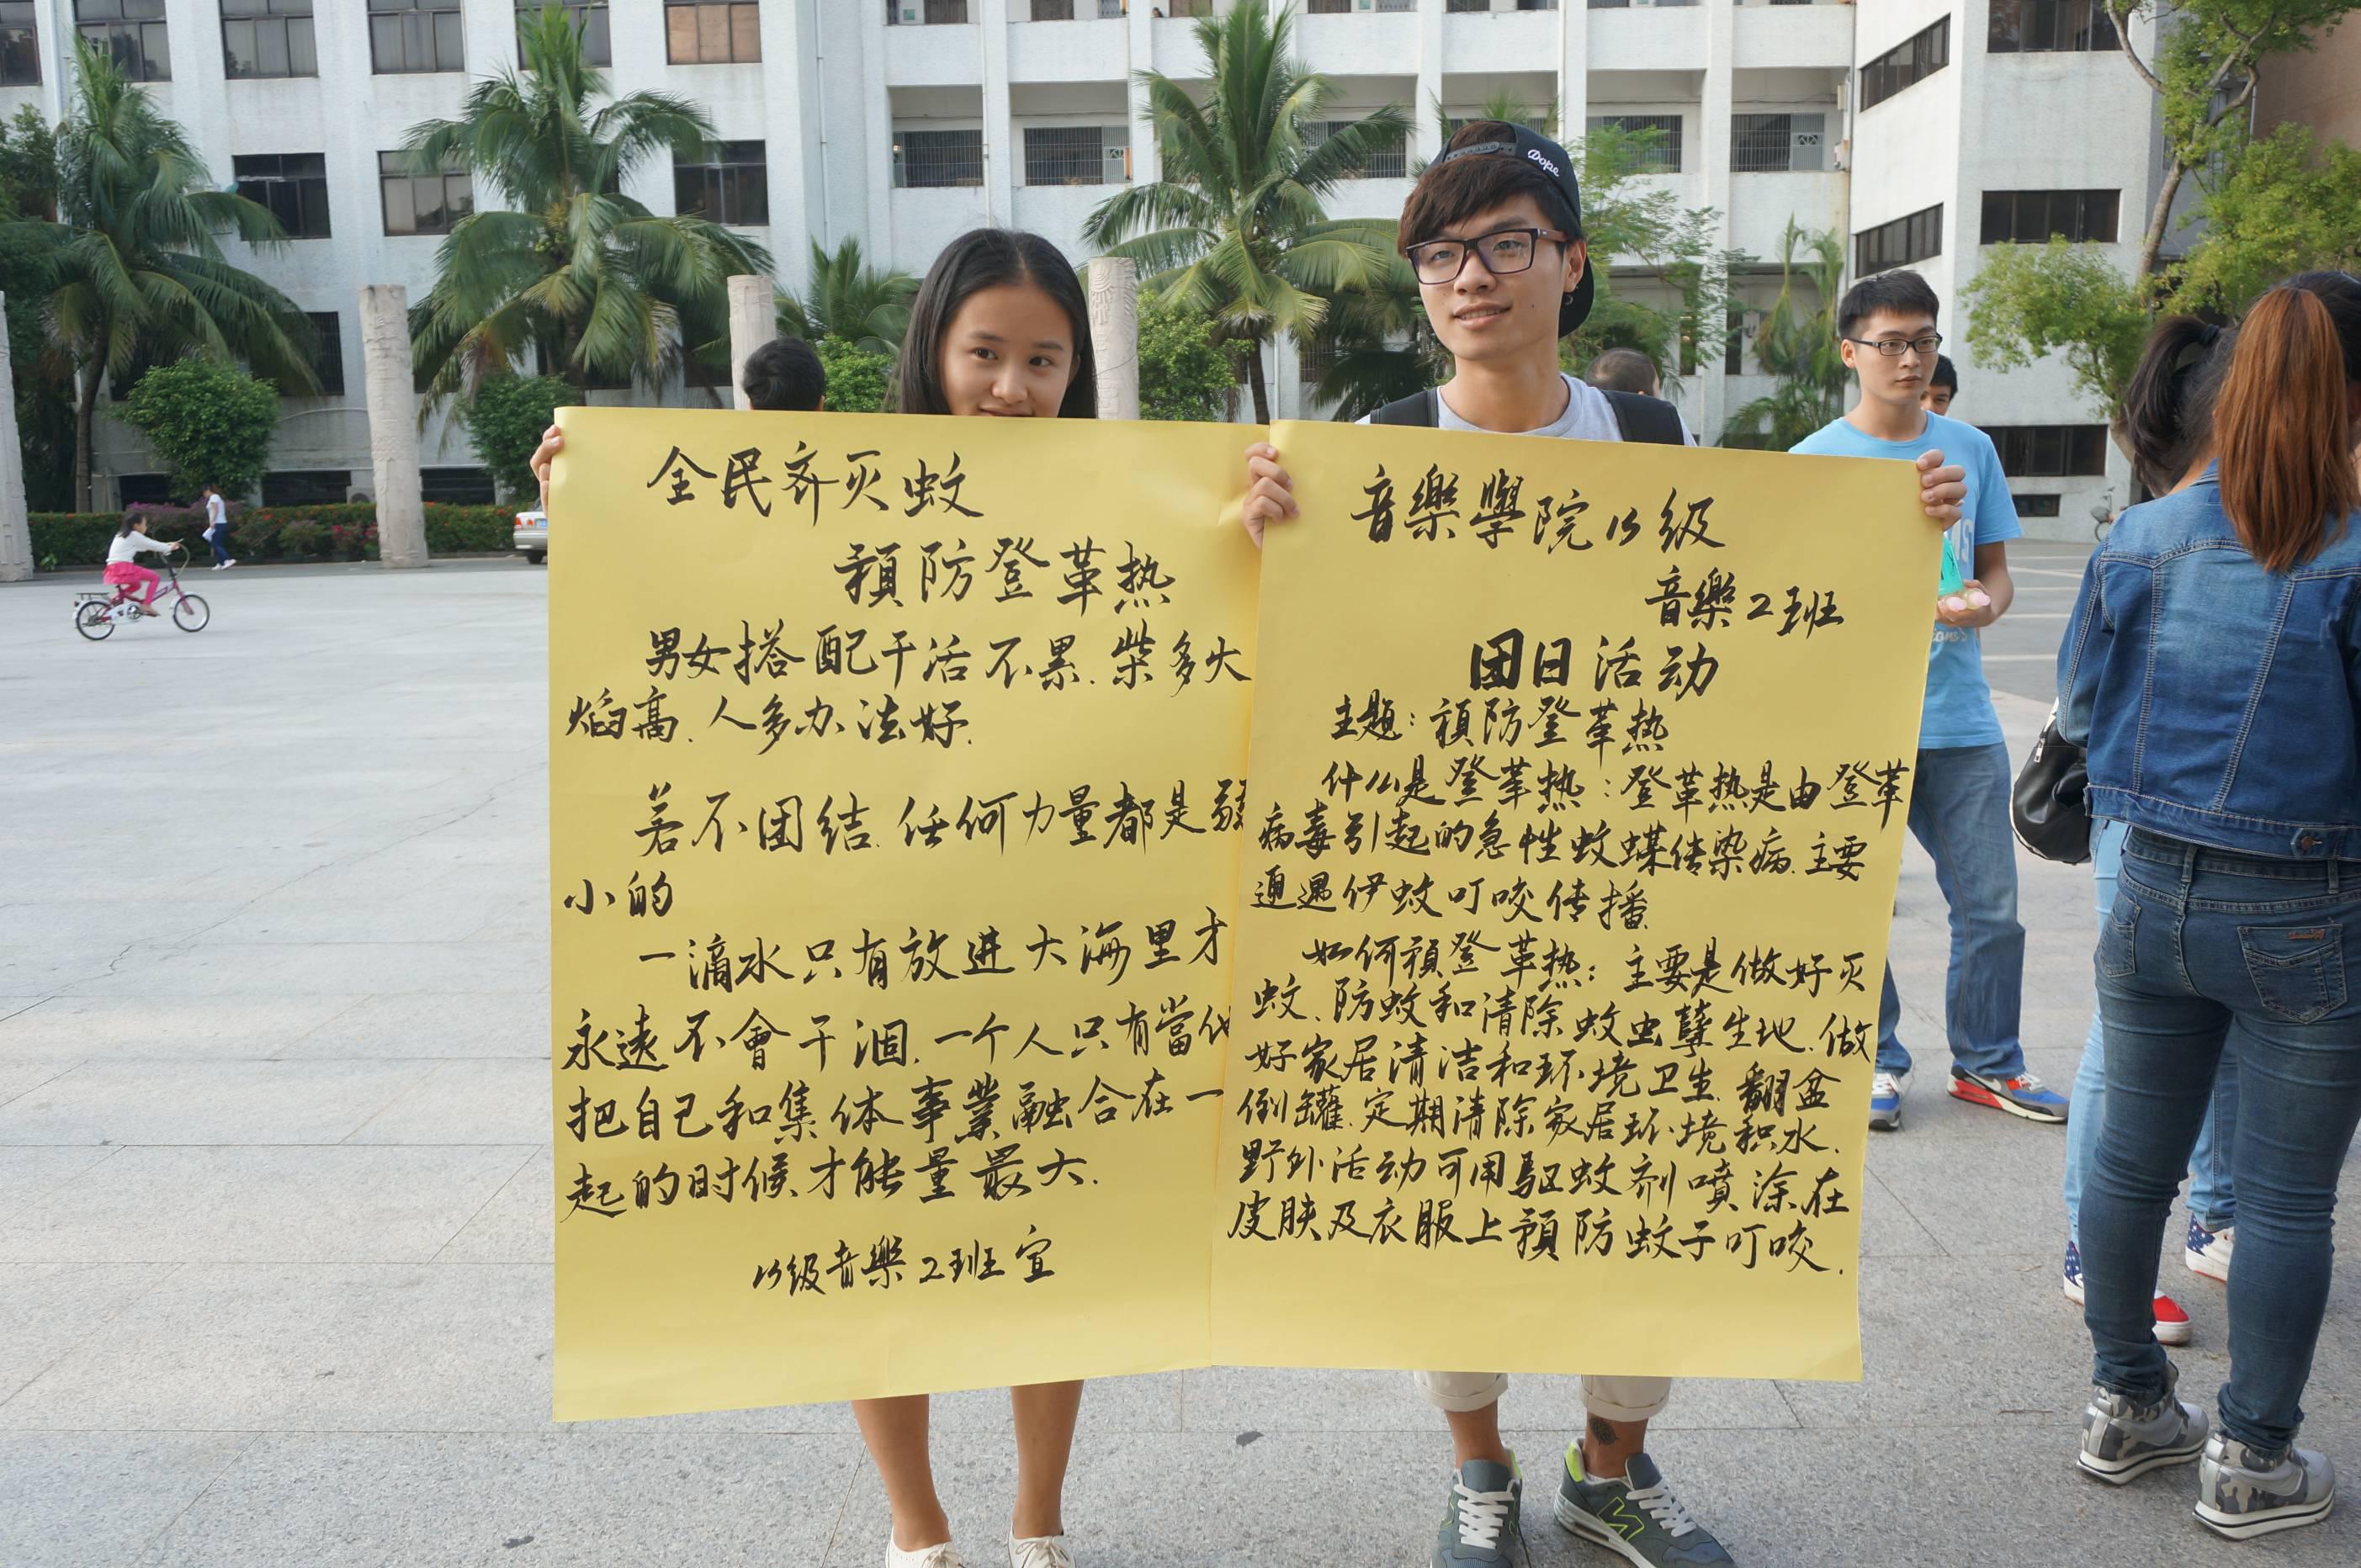 Dope
全民齐灭蚊
預防登革热
男女搭配干活不累.柴多火
焰高.人多办法好.
若不团结.任何力量都是弱
小的
一滴水只有放进大海里才
永遠不會干涸.一个人只有當他
把自己和集体事業融合在一
起的时候才能量最大.
13级音樂2班宣
音樂學院13级
音樂2班
团日活动
主题:預防登革热
什么是登革热:登革热是由登革
病毒引起的急性蚊媒传染病.主要
通過伊蚊叮咬传播.
如何預登革热:主要是做好灭
蚊、防蚊和清除蚊虫孳生地.做
好家居清洁和环境卫生.翻盆
倒罐.定期清除家居环境积水.
野外活动可用驱蚊剂噴涂在
皮肤及衣服上預防蚊子叮咬.